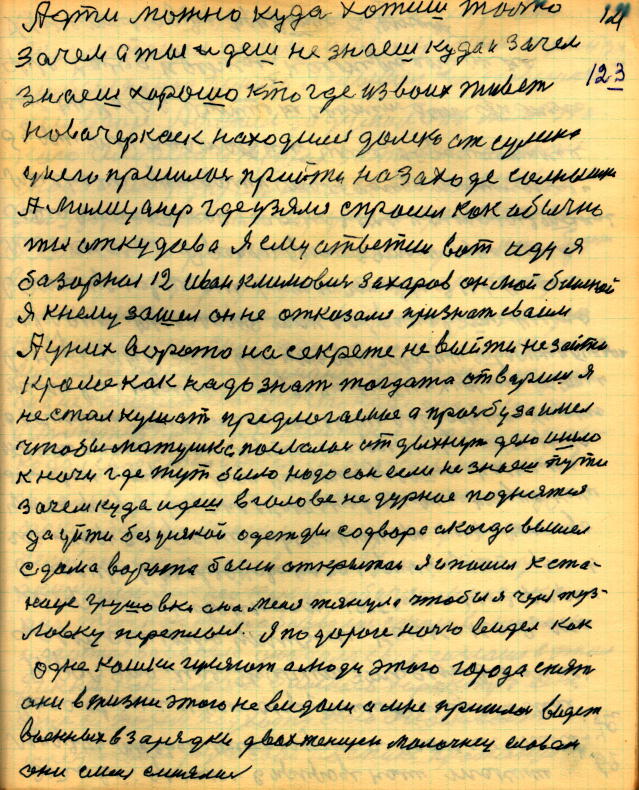 А идти можно куда хотиш только 124
зачем а ты идеш не знаеш куда и зачем
123
знаеш хорошо кто где из воих живет
новачеркаск находился далеко от сулина
у него пришлося прийти на заходе солнышка
А милицанер где узялся спросил как обычно
ты откудова Я ему ответил вот иду я
базарная 12 Иван климович Захаров он мой близкой
Я к нему зашел он не отказался признат сваим
А у них ворота на секрете не выйти не зайти
кроме как надо знат тогда та отвариш я
не стал кушат предлогаемые а прозьбу заимел
чтобы матушка послалася отдыхнут дело ишло
к ночи где тут было надо сон если не знаеш пути
зачем куда идеш в голове не дурное поднятся
да уйти без усякой одежды со двора а когда вышел
с дома ворота были открытая Я и пошел к ста-
нице грушовки она меня тянула чтобы я через туз-
ловку переплыл. Я по дороге ночю видел как
одне кошки гуляют а люди этого города спят
они в жизни этого не видали а мне пришлося видет
военных в зарядки двох женщен молочнец словом
они